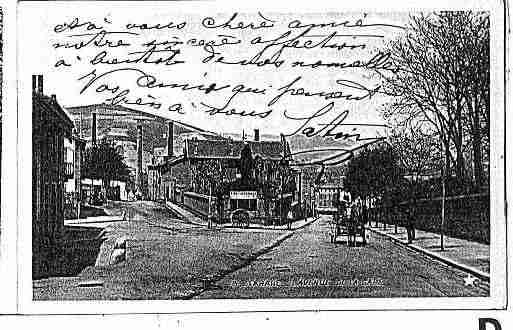 à vous chère amie
notre sincère affection
à bientôt de vos nouvelles
Vos amis qui pensent
bien à vous
TARARE L'AVENUE DE LA GARE
D